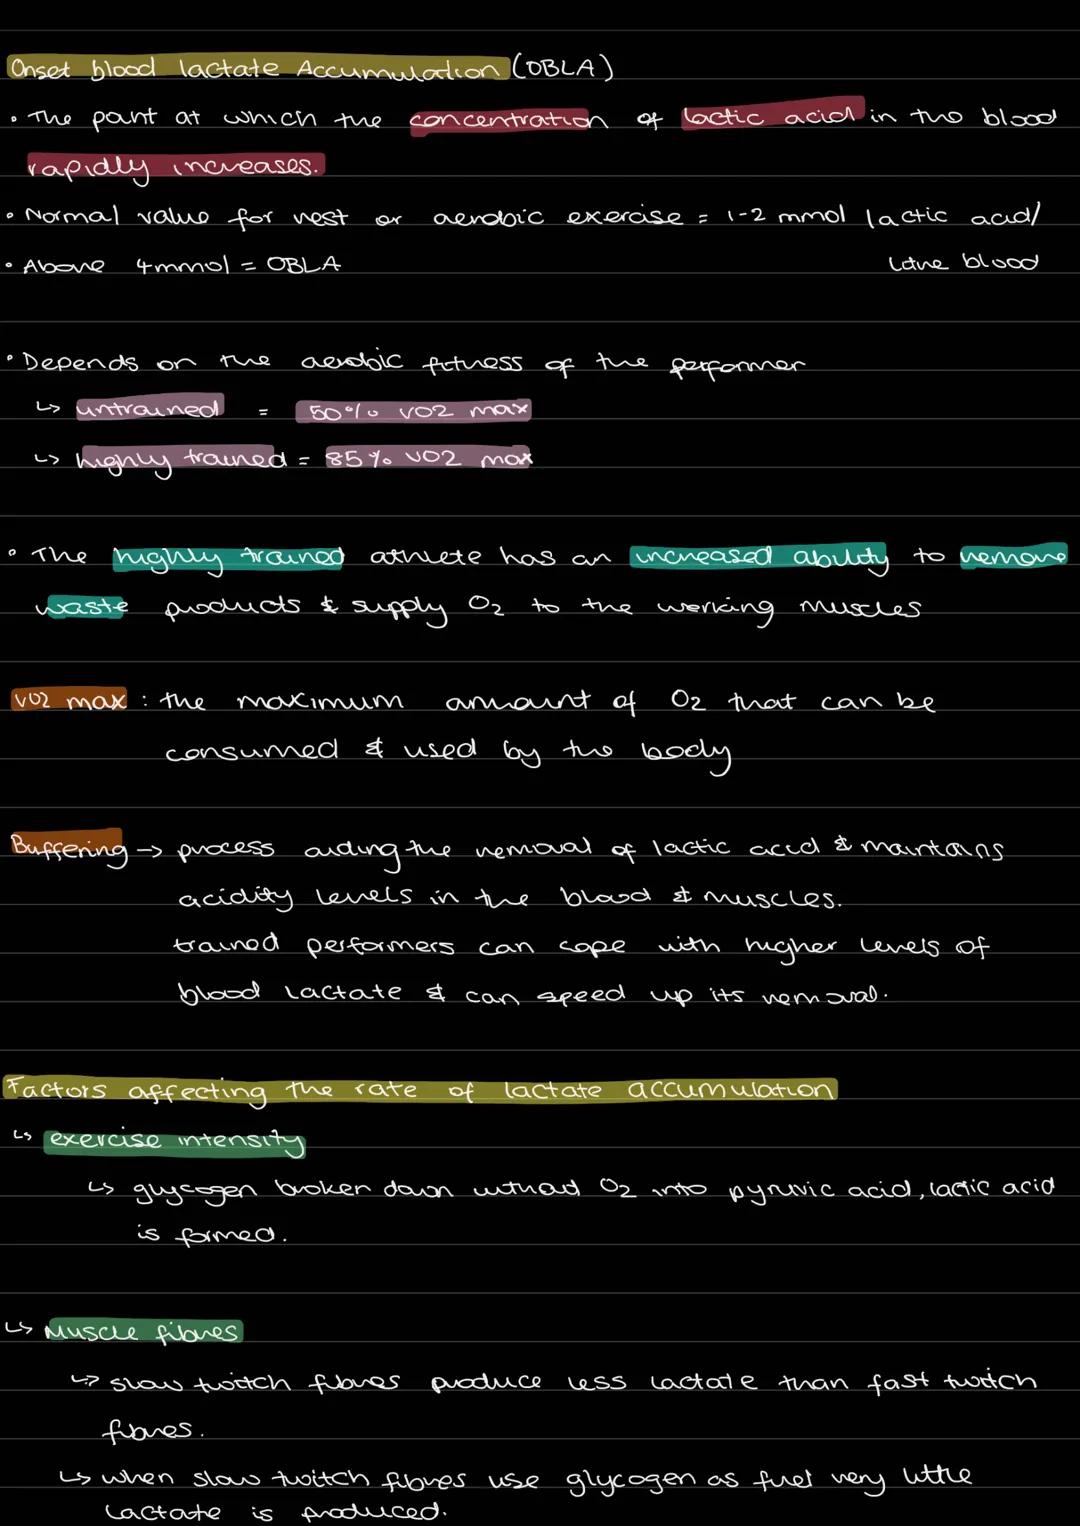 Onset blood lactate Accumulation (OBLA)
• The point at which the concentration of lactic acid in the blood
rapidly increases.
• Normal value for rest or aerobic exercise = 1-2 mmol lactic acid/
litre blood
• Above 4mmol = OBLA
• Depends on the aerobic fitness of the performer
↳ untrained = 50% VO2 max
↳ highly trained = 85% VO2 max
• The highly trained athlete has an increased ability to remove
waste products & supply O2 to the working muscles
VO2 max : the maximum amount of O2 that can be
consumed & used by the body
Buffering → process aiding the removal of lactic acid & maintains
acidity levels in the blood & muscles.
trained performers can cope with higher levels of
blood lactate & can speed up its removal.
Factors affecting the rate of lactate accumulation
↳ exercise intensity
↳ glycogen broken down without O2 into pyruvic acid, lactic acid
is formed.
↳ Muscle fibres
↳ slow twitch fibres produce less lactate than fast twitch
fibres.
↳ when slow twitch fibres use glycogen as fuel very little
lactate is produced.